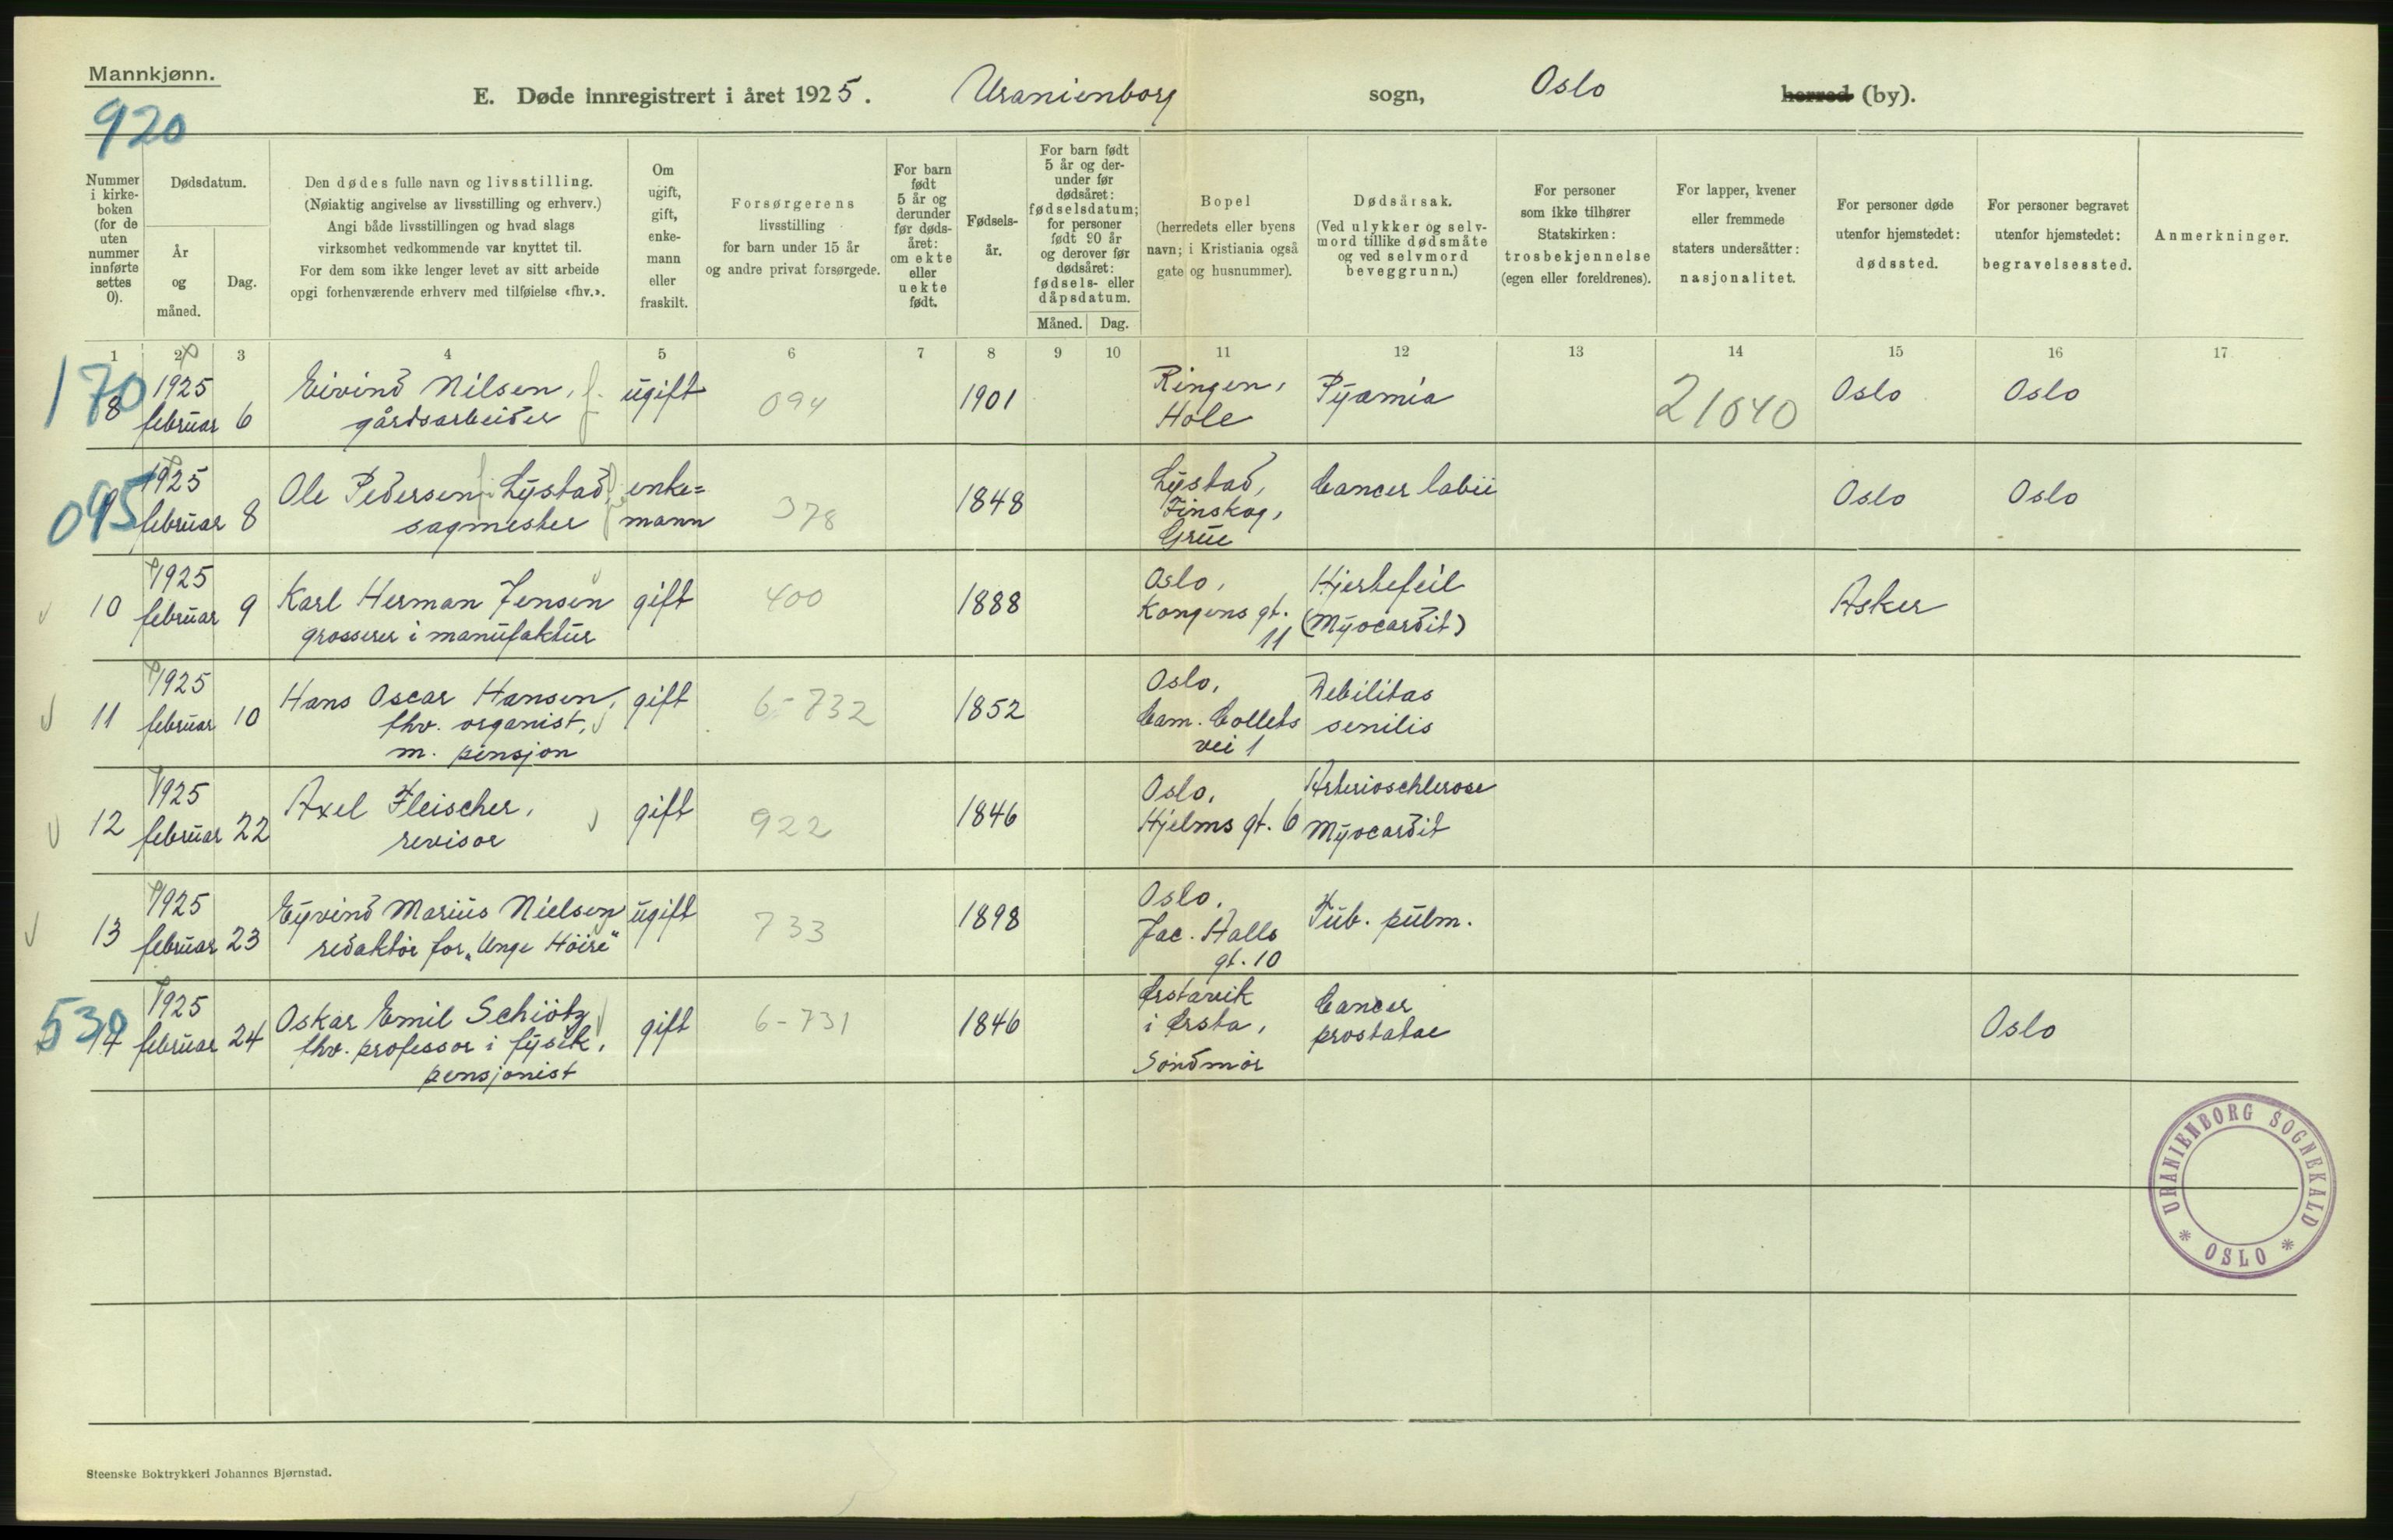 Mannkjønn.
920
E. Døde innregistrert i året 1925. Uranienborg sogn, Oslo herred (by).
Nummer i kirke- boken (for de uten nummer innførte settes 0).
Dødsdatum.
År og måned.
Dag.
Den dødes fulle navn og livsstilling.
(Nøiaktig angivelse av livsstilling og erhverv.)
Angi både livsstillingen og hvad slags
virksomhet vedkommende var knyttet til.
For dem som ikke lenger levet av sitt arbeide
opgi forhenværende erhverv med tilføielse «fhv.».
Om ugift, gift, enke- mann eller fraskilt.
Forsørgerens
livsstilling
for barn under 15 år
og andre privat forsørgede.
For barn født 5 år og derunder før døds- året: om ekte eller uekte født.
Fødsels- år.
For barn født 5 år og der- under før dødsåret: fødselsdatum; for personer født 90 år og derover før dødsåret: fødsels- eller dåpsdatum.
Måned.
Dag.
Bopel
(herredets eller byens
navn; i Kristiania også
gate og husnummer).
Dødsårsak.
(Ved ulykker og selv-
mord tillike dødsmåte
og ved selvmord
beveggrunn.)
For personer
som ikke tilhører
Statskirken:
trosbekjennelse
(egen eller foreldrenes).
For lapper, kvener
eller fremmede
staters undersåtter:
nasjonalitet.
For personer døde
utenfor hjemstedet:
dødssted.
For personer begravet
utenfor hjemstedet:
begravelsessted.
Anmerkninger.
1 2 3 4 5 6 7 8 9 10 11 12 13 14 15 16 17
170
8 1925 februar 6 Eivind Nilsen, gårdsarbeider ugift 094 1901 Ringen, Hole Pyæmia 21040 Oslo Oslo
095
1925 februar 8 Ole Pedersen Lystad, sagmester enke= mann 378 1848 Lystad, Finskog, Grue Cancer labii Oslo Oslo
10 1925 februar 9 Karl Herman Jensen grosserer i manufaktur gift 400 1888 Oslo, Kongens gt. 11 Hjertefeil (Myocardit) Asker
11 1925 februar 10 Hans Oscar Hansen, fhv. organist, m. pensjon gift 6-732 1852 Oslo, Cam. Colletts vei 1 Debilitas senilis
12 1925 februar 22 Axel Fleischer, revisor gift 922 1846 Oslo, Hjelms gt. 6 Arterioschlerose Myocardit
13 1925 februar 23 Eyvind Marius Nielsen redaktør for „Unge Höire“ ugift 733 1898 Oslo, Jac. Aalls gt. 10 Tub. pulm.
1925 februar 24 Oskar Emil Schiötz fhv. professor i fysik, pensjonist gift 6-731 1846 Ørstavik i Ørsta, Söndmör Cancer prostatae Oslo
URANIENBORG SOGNEKALD * OSLO *
Steenske Boktrykkeri Johannes Bjørnstad.